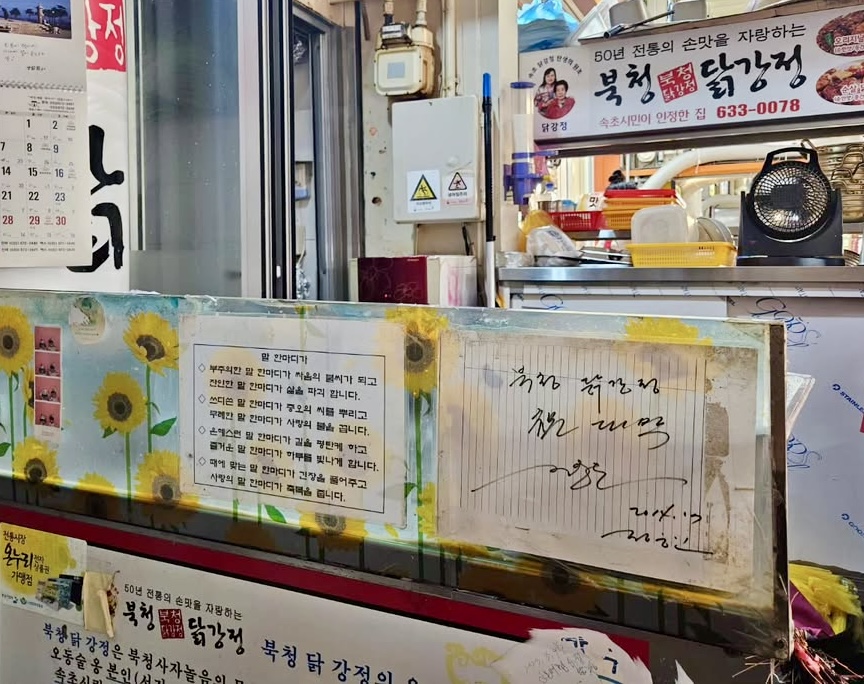 강정
1 2
7 8 9
14 15 16
21 22 23
28 29 30
닭
50년 전통의 손맛을 자랑하는
북청 북청닭강정 닭강정
속초시민이 인정한 집 633-0078
속초 닭강정 탄생의 원조
닭강정
오리지널
맛
말 한마디가
◇ 부주의한 말 한마디가 싸움의 불씨가 되고
잔인한 말 한마디가 삶을 파괴 합니다.
◇ 쓰디쓴 말 한마디가 증오의 씨를 뿌리고
무례한 말 한마디가 사랑의 불을 끕니다.
◇ 은혜스런 말 한마디가 길을 평탄케 하고
즐거운 말 한마디가 하루를 빛나게 합니다.
◇ 때에 맞는 말 한마디가 긴장을 풀어주고
사랑의 말 한마디가 축복을 줍니다.
북청 닭강정
祝 대박
2014.
전통시장
온누리 전자상품권
가맹점
50년 전통의 손맛을 자랑하는
북청 북청닭강정 닭강정
북청닭강정은 북청사자놀음의
오동술옹 본인
속초시민
북청 닭강정의